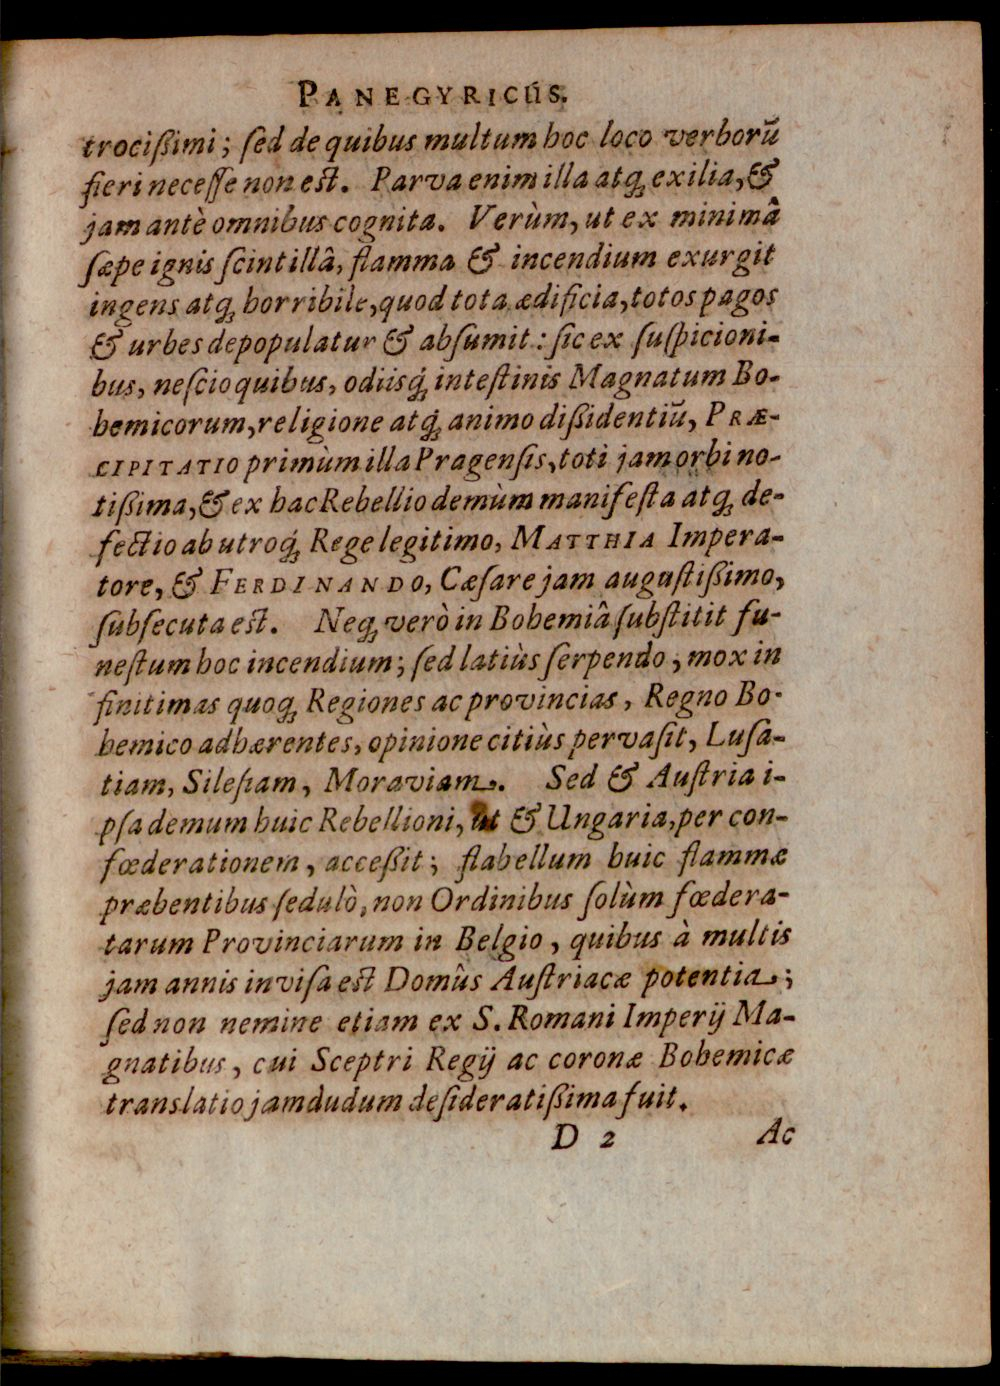 PANEGYRICUS.
trocißimi; ſed de quibus multum hoc loco verborũ
fieri neceſſe non eſt. Parva enim illa atq; exilia, &
jam antè omnibus cognita. Verùm, ut ex minimâ
ſæpe ignis ſcintillâ, flamma & incendium exurgit
ingens atq; horribile, quod tota ædificia, totos pagos
& urbes depopulatur & abſumit: ſic ex ſuſpicioni-
bus, neſcio quibus, odiisq́; inteſtinis Magnatum Bo-
hemicorum, religione atq́; animo dißidentiũ, PRÆ-
CIPITATIO primùm illa Pragenſis, toti jam orbi no-
tißima, & ex hac Rebellio demùm manifeſta atq; de-
fectio ab utroq́; Rege legitimo, MATTHIA Impera-
tore, & FERDINANDO, Cæſare jam auguſtißimo,
ſubſecuta eſt. Neq; verò in Bohemiâ ſubſtitit fu-
neſtum hoc incendium; ſed latiùs ſerpendo, mox in
finitimas quoq; Regiones ac provincias, Regno Bo-
hemico adhærentes, opinione citiùs pervaſit, Luſa-
tiam, Sileſiam, Moraviam. Sed & Auſtria i-
pſa demum huic Rebellioni, ut & Ungaria, per con-
fœderationem, acceßit; flabellum huic flammæ
præbentibus ſedulò, non Ordinibus ſolùm fœdera-
tarum Provinciarum in Belgio, quibus à multis
jam annis inviſa eſt Domûs Auſtriacæ potentia;
ſed non nemine etiam ex S. Romani Imperij Ma-
gnatibus, cui Sceptri Regij ac coronæ Bohemicæ
translatio jamdudum deſideratißima fuit.
D 2 Ac